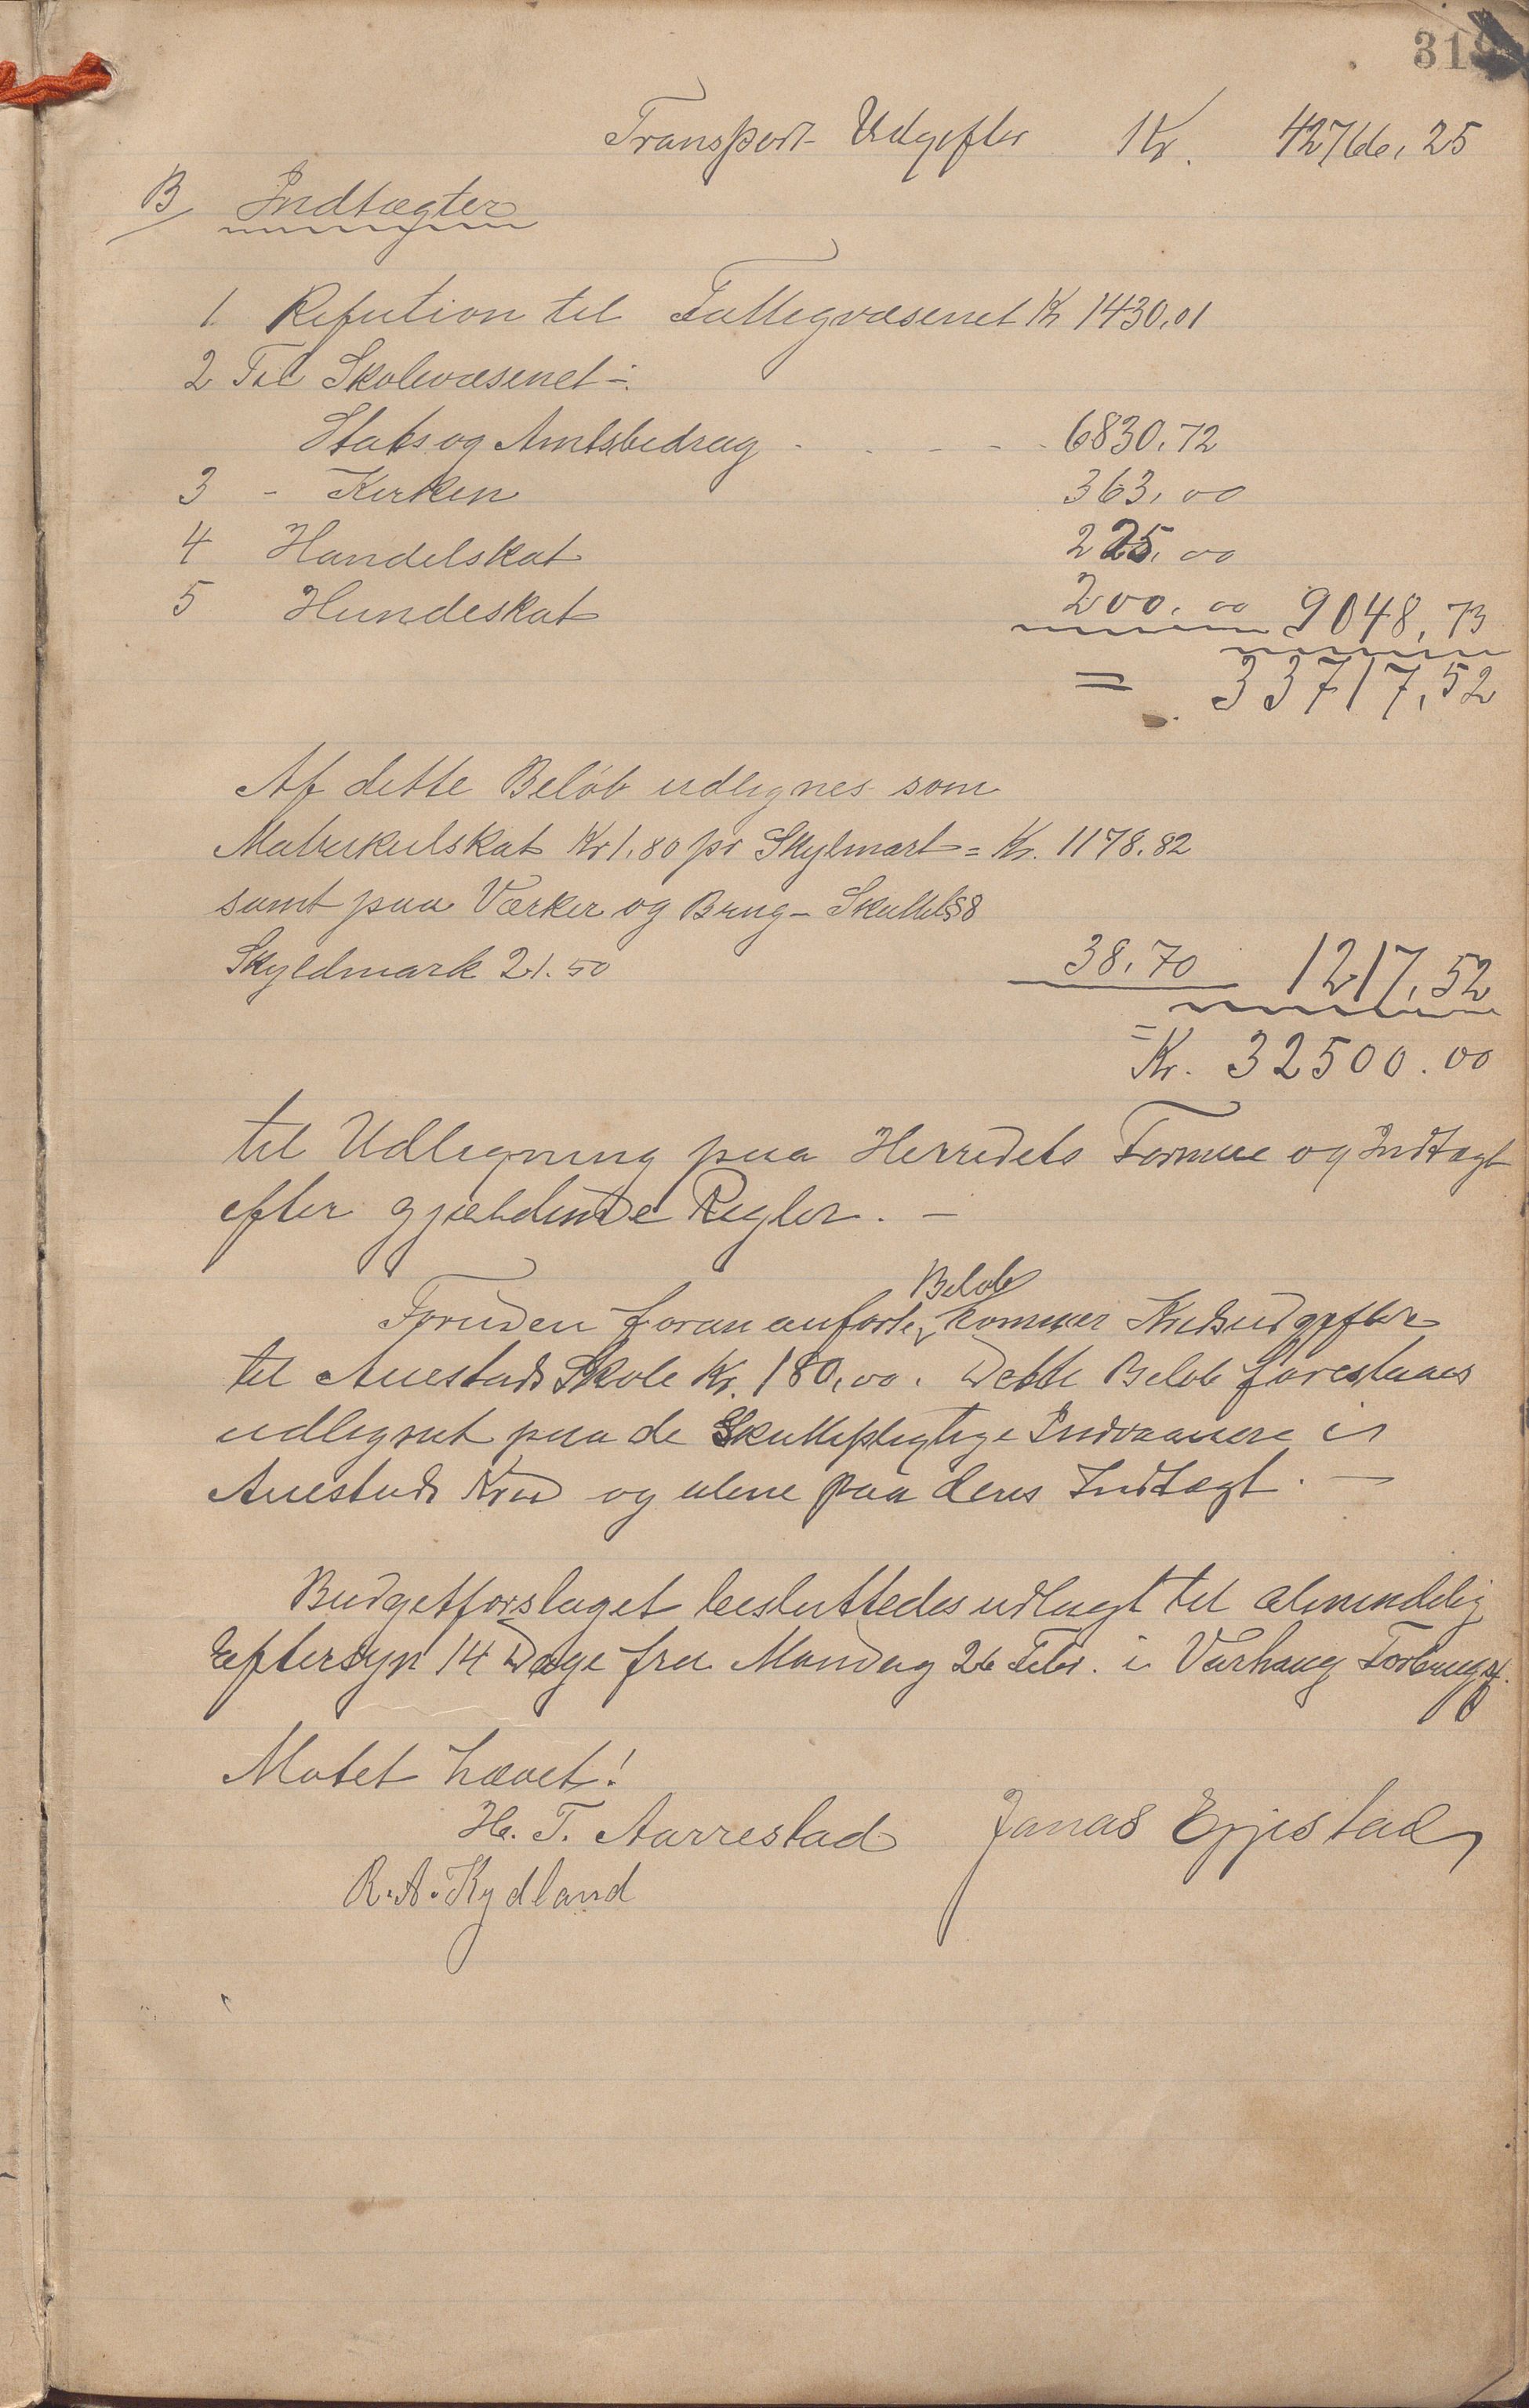 319
Transport Udgifter Kr. 42766,25
B/ Indtægter
1. Refution til Fattigvæsenet Kr 1430,01
2 Til Skolevæsenet -:
Stats og Amtsbidrag - - - - - 6830,72
3 - Kirken 363,00
4 Handelskat 225,00
5 Hundeskat 200,00 9048,73
= 33717,52
Af dette Beløb udlignes som
Matrikulskat Kr 1,80 pr Skylmark = Kr. 1178.82
samt paa Værker og Brug - Skattel §8
Skyldmark 21.50 38,70 1217,52
= Kr. 32500.00
til Udligning paa Herredets Formue og Indtægt
efter gjældende Regler. -
Foruden foran anførte Beløb kommer Kredsudgifter
til Auestads Skole Kr. 180,00. Dette Beløb forestaaes
udlignet paa de Skattepligtige Indvaanere i
Auestads Kred og alene paa deres Indtægt. -
Budgetforslaget besluttedes udlagt til almindelig
Eftersyn 14 Dage fra Mandag 26 Febr. i Varhaug Forbrugsf.
Møtet hævet!
H. T. Aarrestad Jonas Epjestad
R. A. Kydland